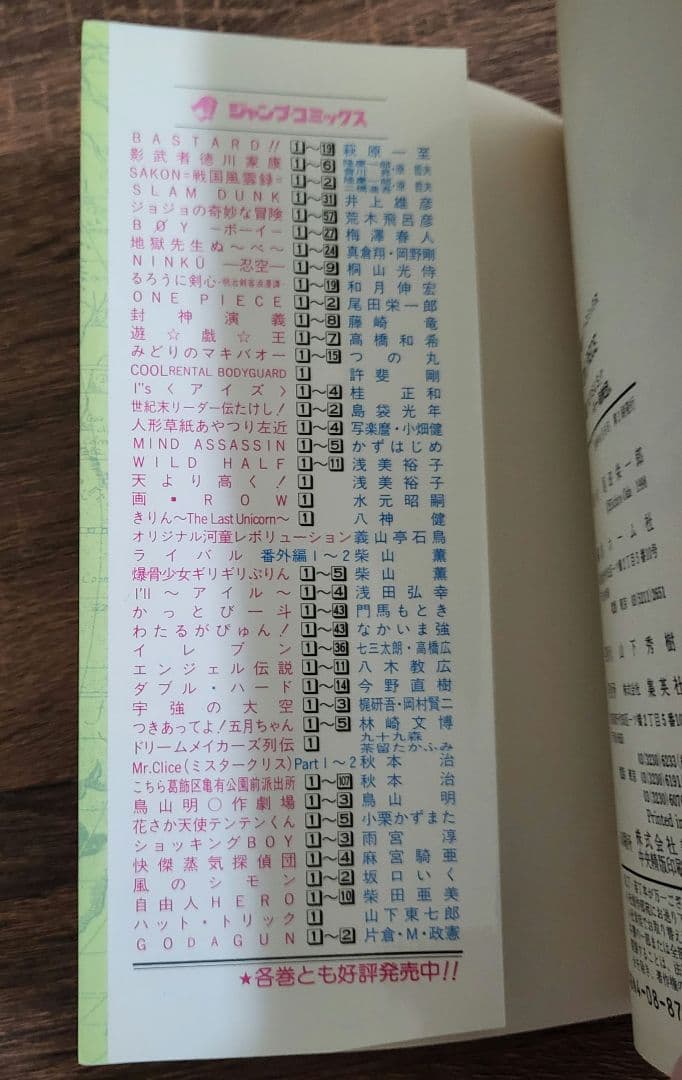 ジャンプコミックス
BASTARD!! 1〜19 萩原一至
影武者徳川家康 1〜6 隆慶一郎・原哲夫 會川昇
SAKON=戦国風雲録= 1〜2 隆慶一郎・原哲夫 二橋進吾
SLAM DUNK 1〜31 井上雄彦
ジョジョの奇妙な冒険 1〜57 荒木飛呂彦
BØY —ボーイ— 1〜27 梅澤春人
地獄先生ぬ〜べ〜 1〜24 真倉翔・岡野剛
NINKU —忍空— 1〜9 桐山光侍
るろうに剣心-明治剣客浪漫譚- 1〜19 和月伸宏
ONE PIECE 1〜2 尾田栄一郎
封神演義 1〜8 藤崎竜
遊☆戯☆王 1〜7 高橋和希
みどりのマキバオー 1〜15 つの丸
COOL RENTAL BODYGUARD 1 許斐剛
I"s〈アイズ〉 1〜4 桂正和
世紀末リーダー伝たけし! 1〜2 島袋光年
人形草紙あやつり左近 1〜4 写楽麿・小畑健
MIND ASSASSIN 1〜5 かずはじめ
WILD HALF 1〜11 浅美裕子
天より高く! 1 浅美裕子
画▪ROW 1 水元昭嗣
きりん〜The Last Unicorn〜 1 八神健
オリジナル河童レボリューション 義山亭石鳥
ライバル 番外編1〜2 柴山薫
爆骨少女ギリギリぷりん 1〜5 柴山薫
I'll 〜アイル〜 1〜4 浅田弘幸
かっとび一斗 1〜43 門馬もとき
わたるがぴゅん! 1〜43 なかいま強
イレブン 1〜36 七三太朗・高橋広
エンジェル伝説 1〜11 八木教広
ダブル・ハード 1〜14 今野直樹
宇強の大空 1〜3 梶研吾・岡村賢二
つきあってよ!五月ちゃん 1〜5 林崎文博
ドリームメイカーズ列伝 1 九十九森 茶留たかふみ
Mr.Clice(ミスタークリス) Part 1〜2 秋本治
こちら葛飾区亀有公園前派出所 1〜107 秋本治
鳥山明○作劇場 1〜3 鳥山明
花さか天使テンテンくん 1〜5 小栗かずまた
ショッキングBOY 1〜3 雨宮淳
快傑蒸気探偵団 1〜4 麻宮騎亜
風のシモン 1〜2 坂口いく
自由人HERO 1〜10 柴田亜美
ハット・トリック 1 山下東七郎
GODAGUN 1〜2 片倉・M・政憲
★各巻とも好評発売中!!
ホーム社
山下秀樹
株式会社 集英社
Printed in
株式会社